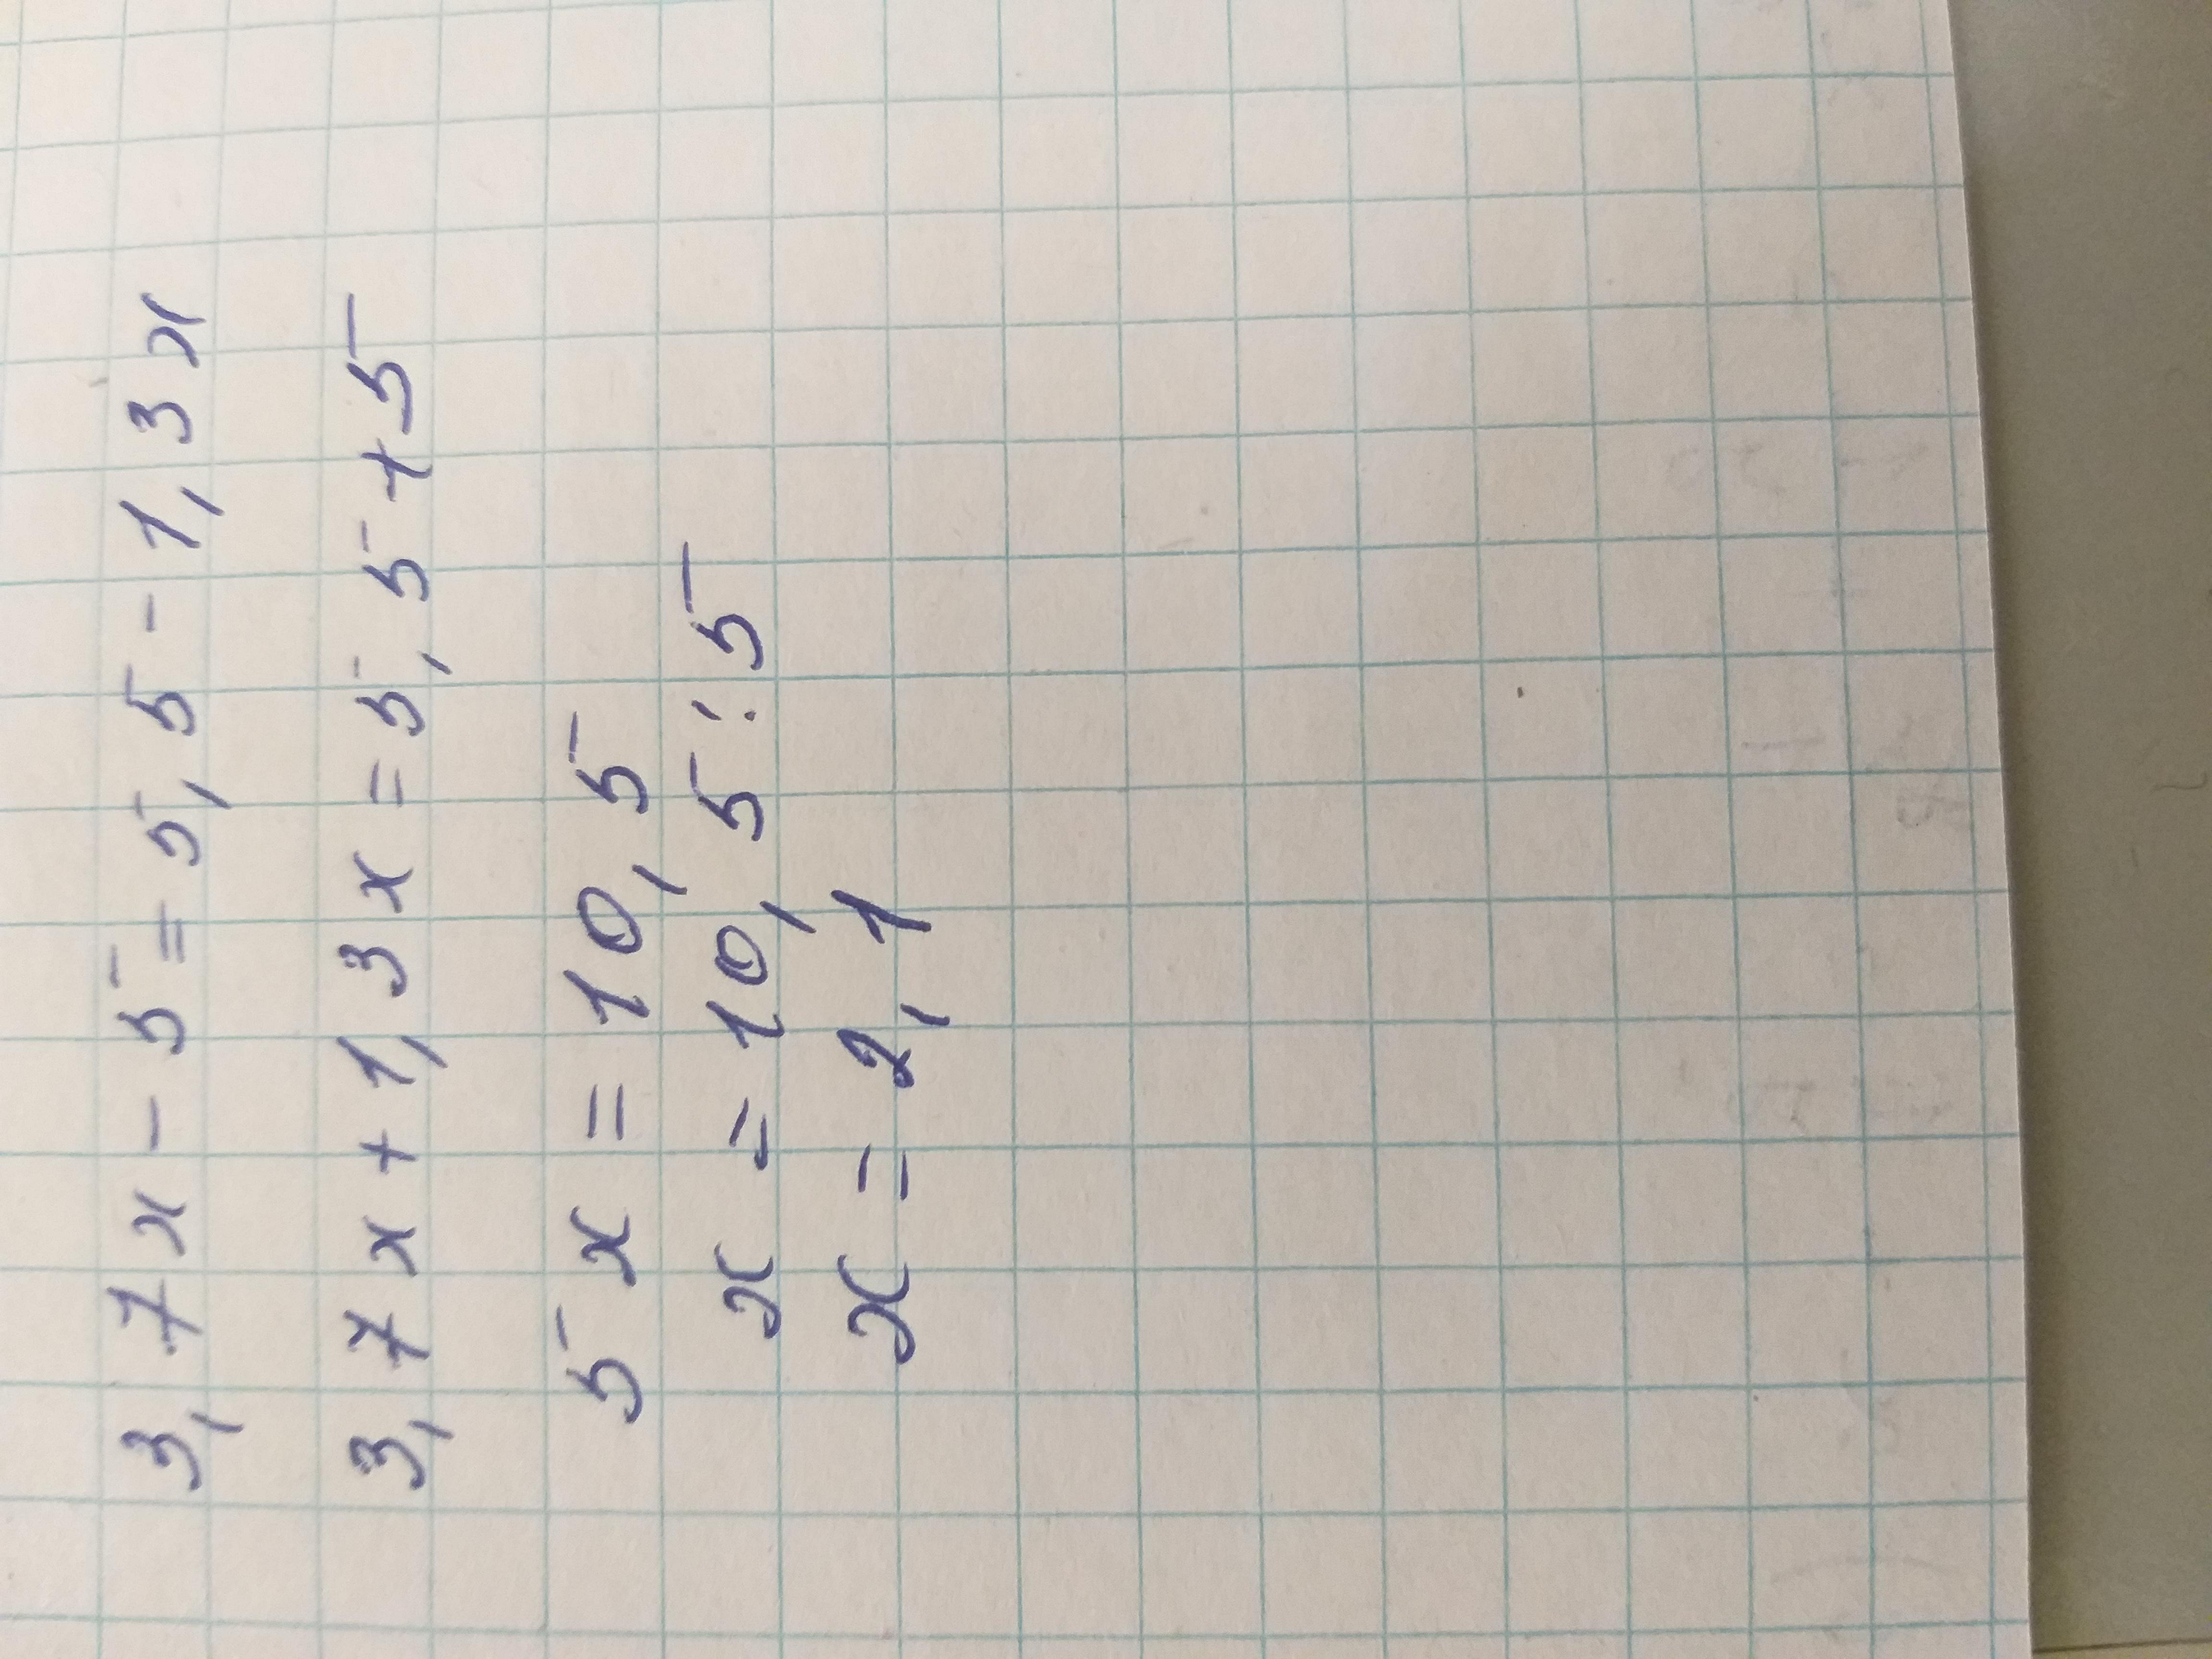 3,7x - 5 = 5,5 - 1,3x
3,7x + 1,3x = 5,5 + 5
5x = 10,5
x = 10,5 : 5
x = 2,1